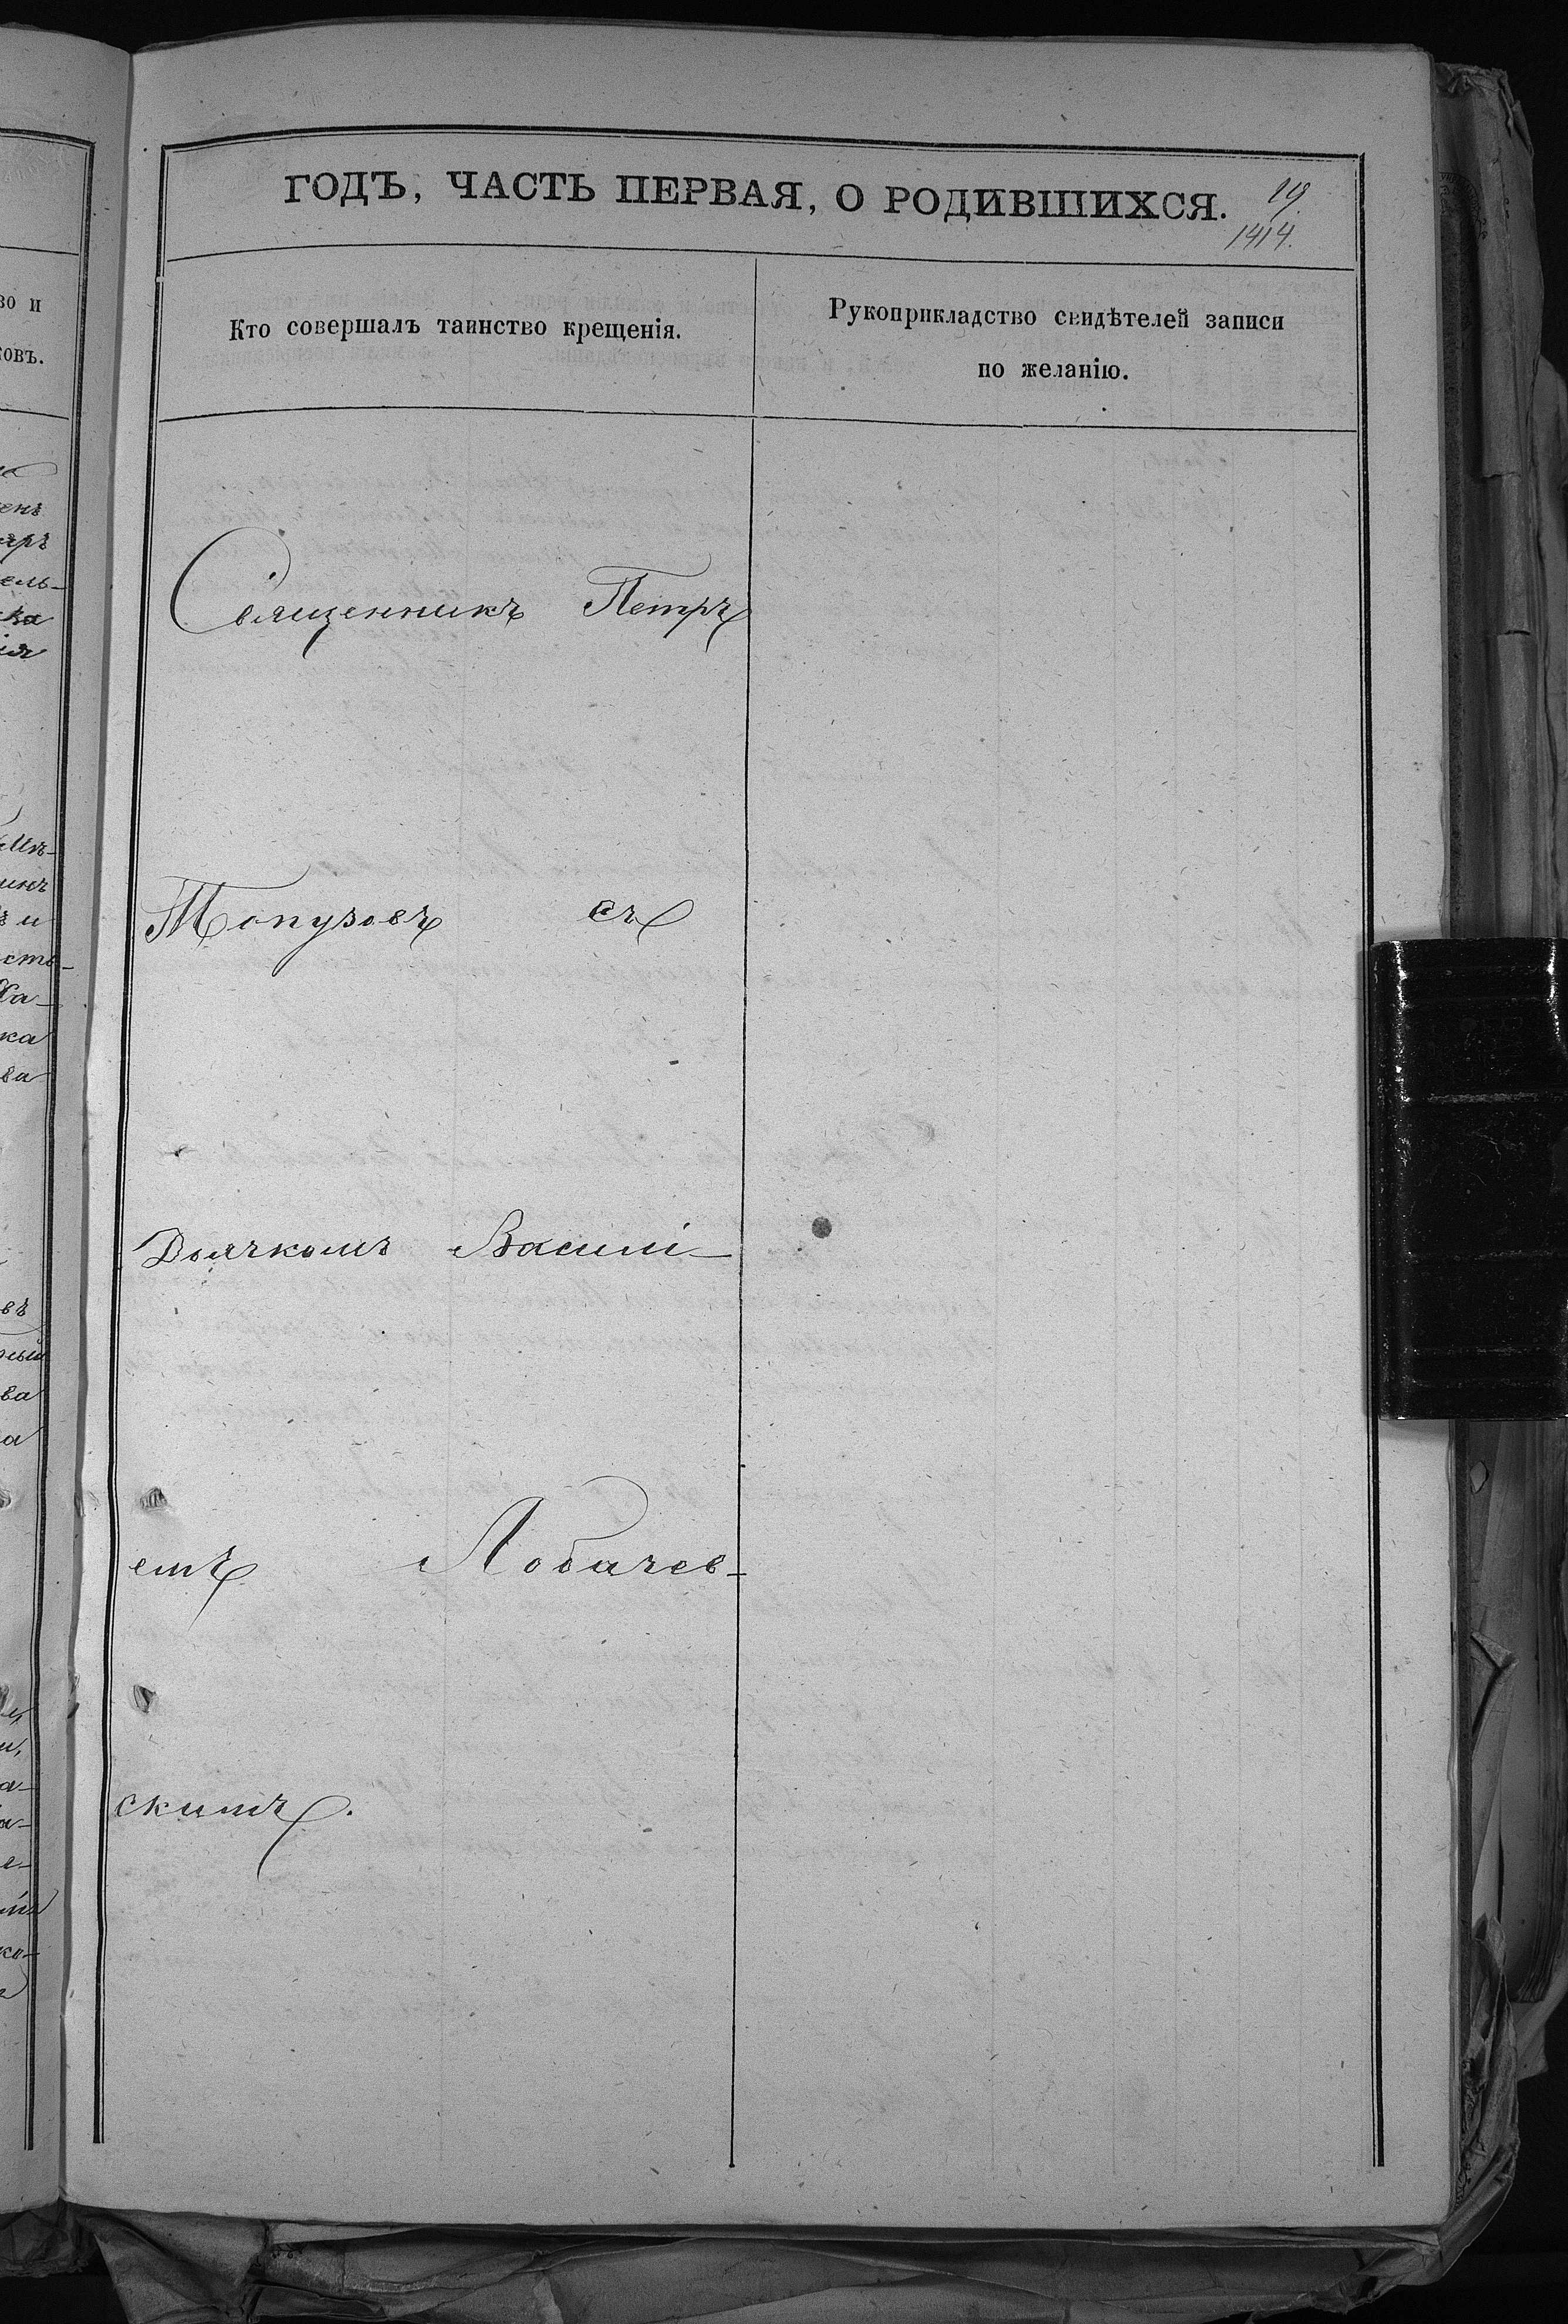 ГОДЪ, ЧАСТЬ ПЕРВАЯ, О РОДИВШИХСЯ.
19.
1414.
Кто совершалъ таинство крещенія.
Рукоприкладство свидѣтелей записи
по желанію.
Священникъ Петръ
Топузовъ съ
Дьячкомъ Василі-
емъ Лобачев-
скимъ.
во и
ковъ.